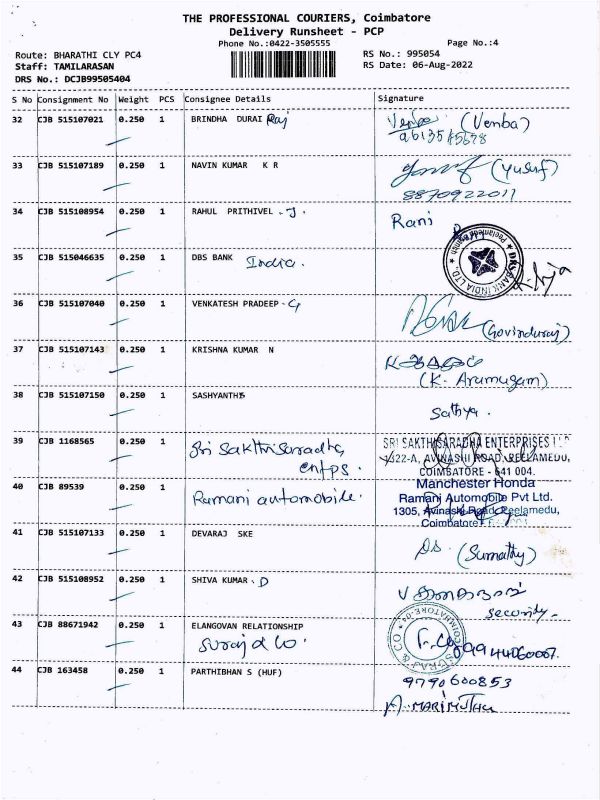 THE PROFESSIONAL COURIERS, Coimbatore
Delivery Runsheet - PCP
Phone No.:0422-3505555
Page No.:4
Route: BHARATHI CLY PC4
RS No.: 995054
Staff: TAMILARASAN
RS Date: 06-Aug-2022
DRS No.: DCJB99505404
S No Consignment No Weight PCS Consignee Details Signature
32 CJB 515107021 0.250 1 BRINDHA DURAI Raj (Vemba)
33 CJB 515107189 0.250 1 NAVIN KUMAR K R (Yusuf)
8870922011
34 CJB 515108954 0.250 1 RAHUL PRITHIVEL .J. Rani
35 CJB 515046635 0.250 1 DBS BANK India.
DBS BANK INDIA LTD.
36 CJB 515107040 0.250 1 VENKATESH PRADEEP - G
(Govinduraj)
37 CJB 515107143 0.250 1 KRISHNA KUMAR N
(K. Arumugam)
38 CJB 515107150 0.250 1 SASHYANTHS
Sathya.
39 CJB 1168565 0.250 1 Sri Sakthisaradha
entps.
SRI SAKTHISARADHA ENTERPRISES LLP
1622-A, AVINASHI ROAD, PEELAMEDU,
COIMBATORE - 641 004.
40 CJB 89539 0.250 1 Ramani automobile.
Manchester Honda
Ramani Automobile Pvt Ltd.
1305, Avinashi Road, Peelamedu,
Coimbatore
41 CJB 515107133 0.250 1 DEVARAJ SKE
(Sumathy)
42 CJB 515108952 0.250 1 SHIVA KUMAR . D
security
43 CJB 88671942 0.250 1 ELANGOVAN RELATIONSHIP
Suraj & co.
SURAJ & CO
COIMBATORE-04
9944060007.
44 CJB 163458 0.250 1 PARTHIBHAN S (HUF)
9790600853
A. MARIMUTHU